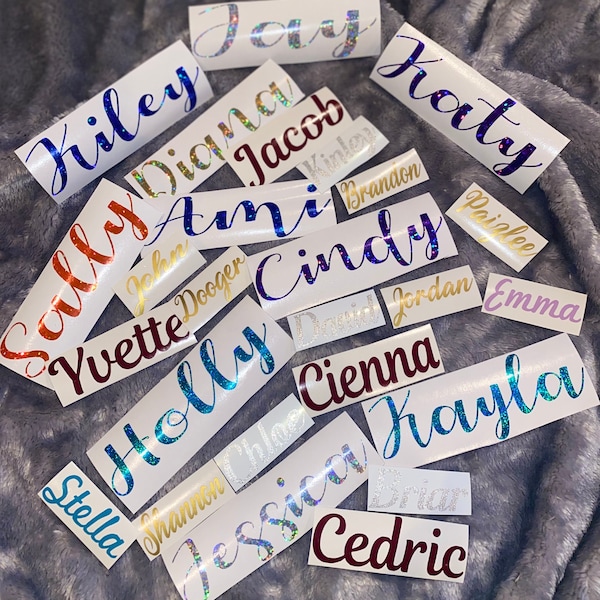 Jay
Kiley
Katy
Diana
Jacob
Kinley
Brandon
Paizlee
Sally
Ami
Cindy
John
Dooger
David
Jordan
Emma
Yvette
Holly
Cienna
Kayla
Chloe
Stella
Shannon
Jessica
Briar
Cedric